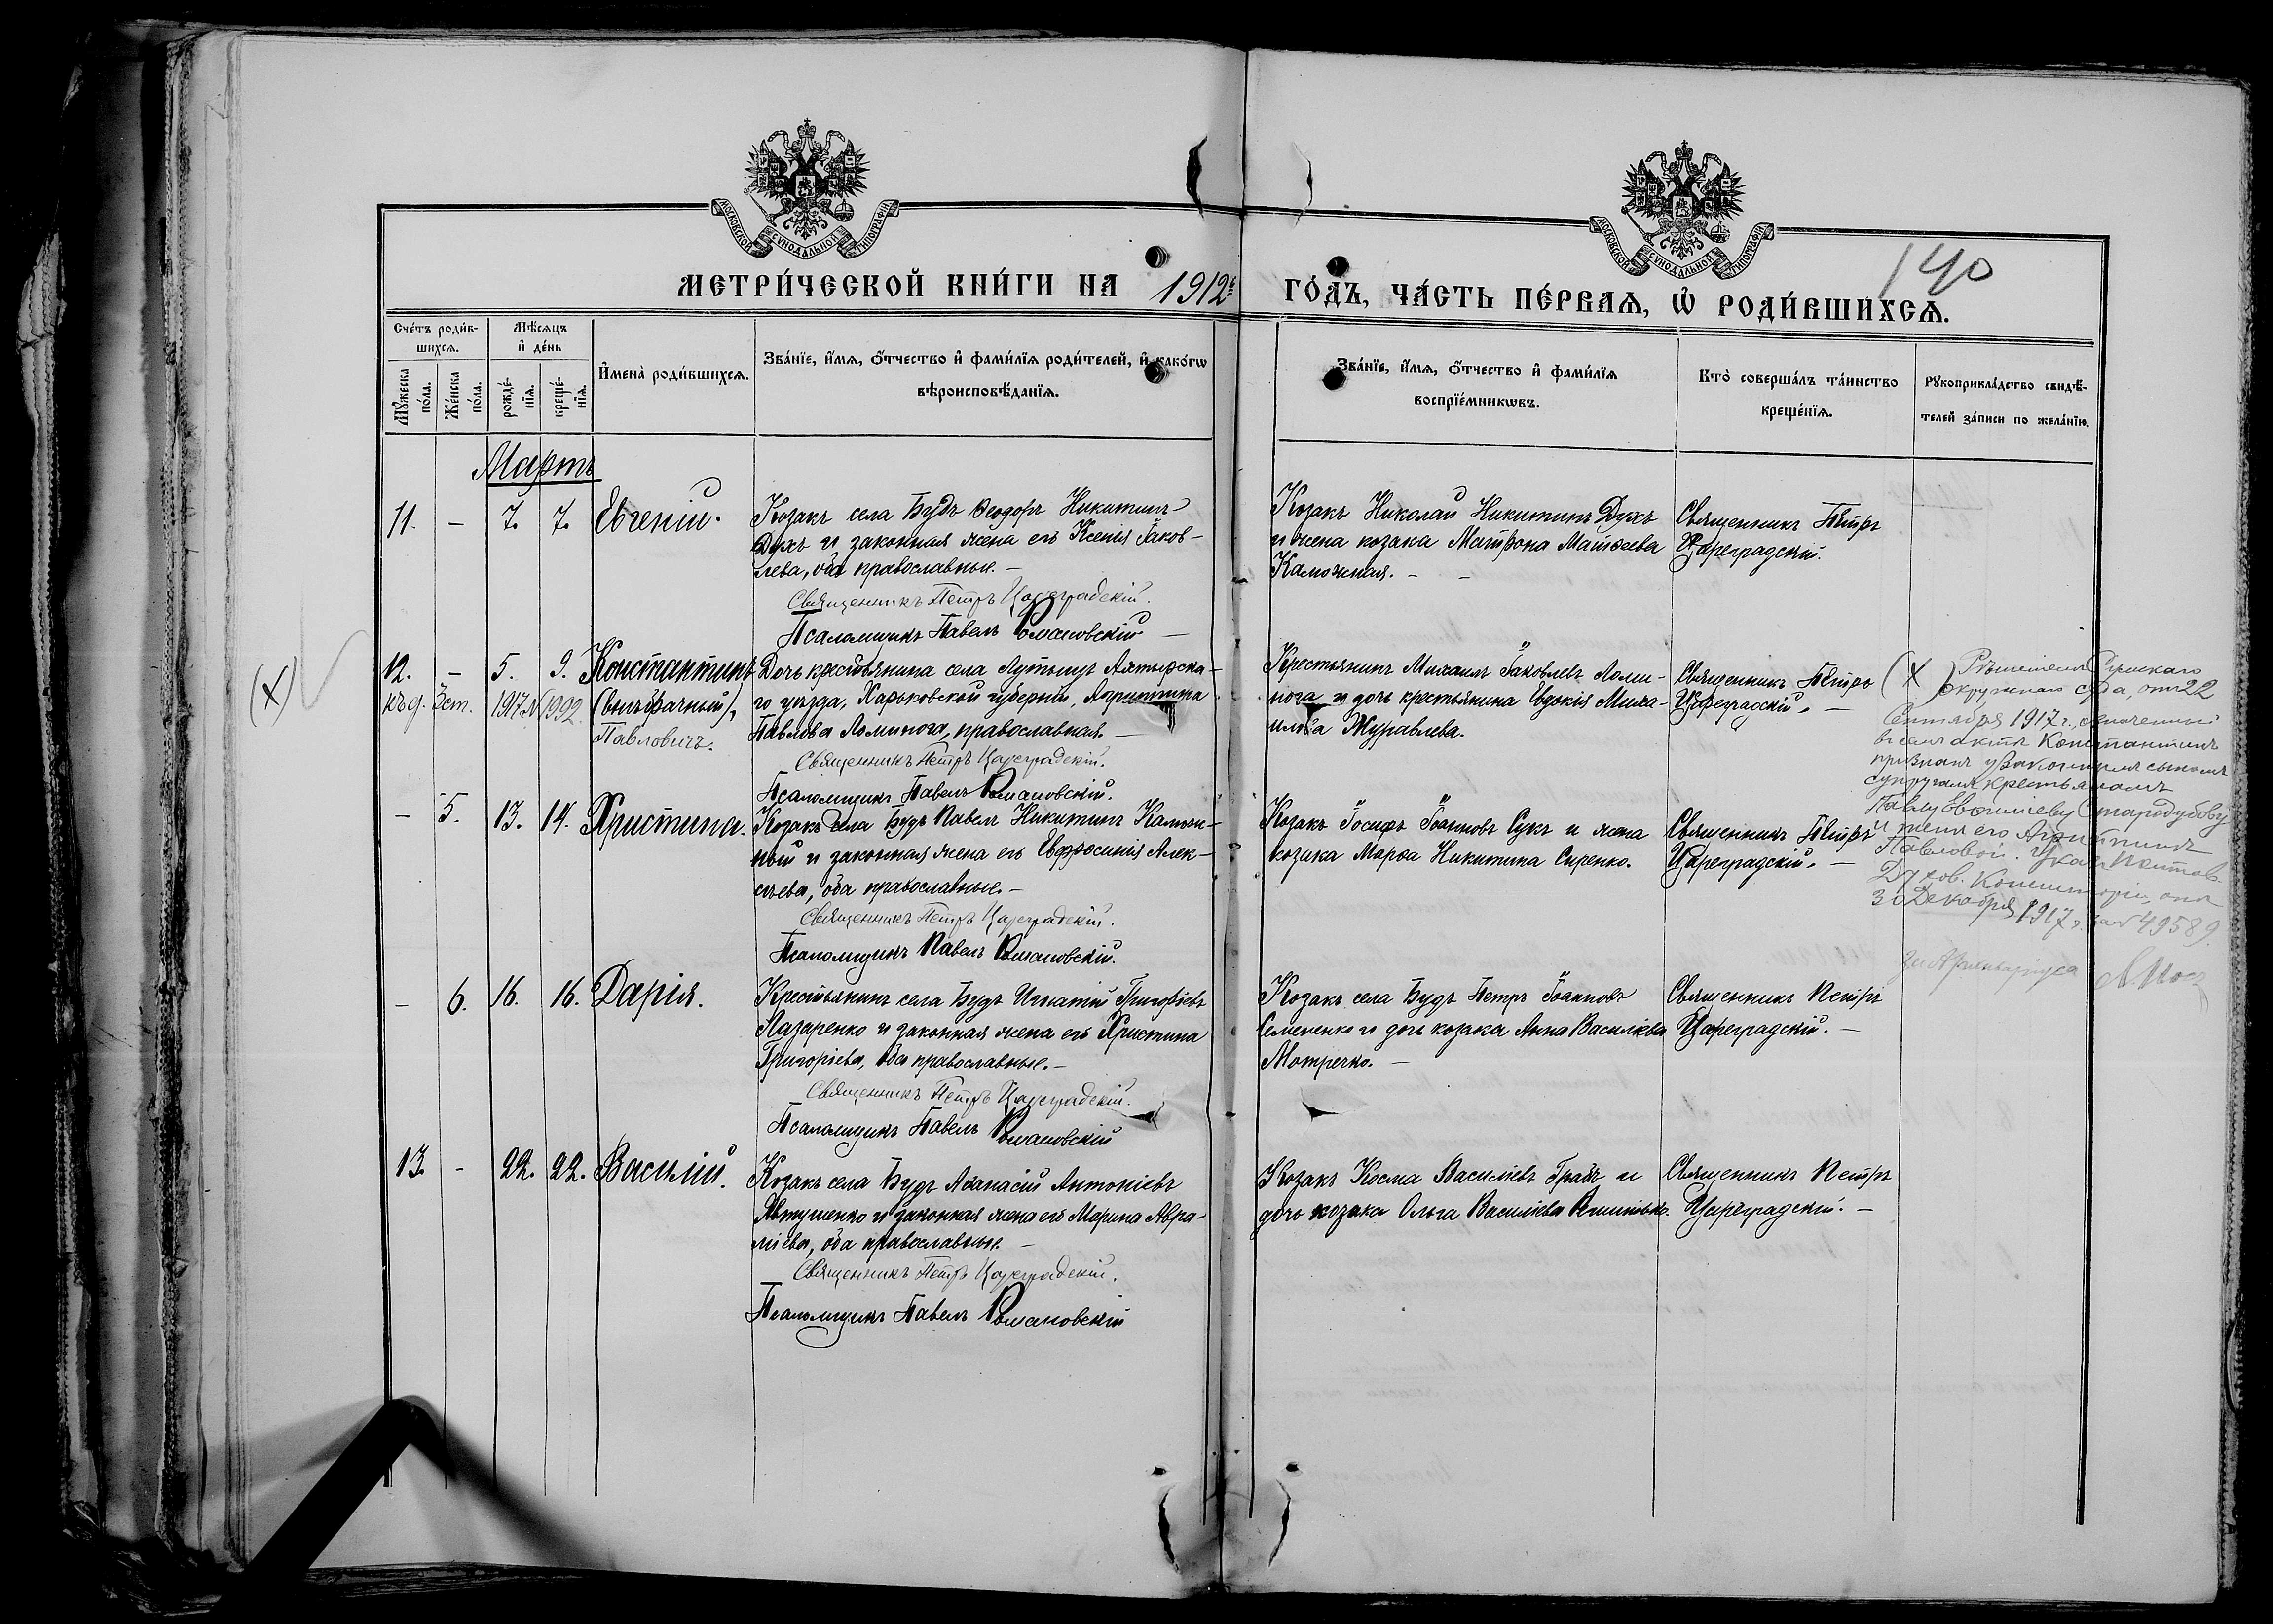 МОСКОВСКОЙ СѴНОДАЛЬНОЙ ТИПОГРАФІИ
МОСКОВСКОЙ СѴНОДАЛЬНОЙ ТИПОГРАФІИ
140
МЕТРИ́ЧЕСКОЙ КНИ́ГИ НА 1912 й ГО́ДЪ, ЧА́СТЬ ПЕ́РВАѦ, Ѡ҆ РОДИ́ВШИХСѦ.
Сче́тъ роди́в-
шихсѧ.
Мꙋ́жеска по́ла.
Же́нска по́ла.
Мѣ́сѧцъ
и҆ де́нь
рожде́-
нїѧ.
креще́-
нїѧ.
И҆мена̀ роди́вшихсѧ.
Зва́нїе, и҆́мѧ, ѻ҆́тчество и҆ фами́лїѧ роди́телей, и҆ како́гѡ
вѣроисповѣ́данїѧ.
Зва́нїе, и҆́мѧ, ѻ҆́тчество и҆ фами́лїѧ
воспрїе́мникѡвъ.
Кто̀ соверша́лъ та́инство
креще́нїѧ.
Рꙋкоприкла́дство свидѣ́-
телей за́писи по жела́нїю.
Мартъ
11. – 7. 7. Евгеній.
Козакъ села Будъ Ѳеодоръ Никитинъ
Духъ и законная жена его Ксенія Іаков-
лева, оба православные. –
Священникъ Петръ Цареградскій.
Псаломщикъ Павелъ Романовскій –
Козакъ Николай Никитинъ Духъ
и жена козака Матрона Матѳеева
Каможная. – –
Священникъ Петръ
Цареградскій.
(X)
12. – 5. 9. Константинъ
1917 1992 (внѣбрачный),
Павловичъ.
Дочь крестьянина села Лутищъ Ахтырска-
го уѣзда, Харьковской губерніи, Агриппина
Павлова Ломинога, православная. –
Священникъ Петръ Цареградскій.
Псаломщикъ Павелъ Романовскій.
Крестьянинъ Михаилъ Іаковлевъ Ломи-
нога и дочь крестьянина Евдокія Миха-
илова Журавлева.
Священникъ Петръ
Цареградскій. –
(X) Рѣшеніемъ Сумскаго
окружнаго суда, отъ 22
Сентября 1917 г., означенный
въ семъ актѣ Константинъ
признанъ узаконеннымъ сыномъ
супруговъ крестьянамъ
Павлу Стародубову
и женѣ его Агриппинѣ
Павловой. Указъ Полтав.
Духов. Консисторіи, отъ
30 Декабря 1917 г. за № 49589.
– 5. 13. 14. Христина.
Козакъ села Будъ Павелъ Никитинъ Камож-
ный и законная жена его Евфросинія Алек-
сѣева, оба православные. –
Священникъ Петръ Цареградскій.
Псаломщикъ Павелъ Романовскій.
Козакъ Іосифъ Іоанновъ Сукъ и жена
козака Марѳа Никитина Сиренко.
Священникъ Петръ
Цареградскій. –
– 6. 16. 16. Дарія.
Крестьянинъ села Будъ Игнатій Григоріевъ
Лазаренко и законная жена его Христина
Григоріева, оба православные. –
Священникъ Петръ Цареградскій.
Псаломщикъ Павелъ Романовскій
Козакъ села Будъ Петръ Іоанновъ
Семененко и дочь козака Анна Василіева
Мотречко. –
Священникъ Петръ
Цареградскій. –
13. – 22. 22. Василій.
Козакъ села Будъ Аѳанасій Антоніевъ
Явтушенко и законная жена его Марина Авра-
міева, оба православные. –
Священникъ Петръ Цареградскій.
Псаломщикъ Павелъ Романовскій
Козакъ Косма Василіевъ Грабъ и
дочь козака Ольга Василіева
Священникъ Петръ
Цареградскій. –